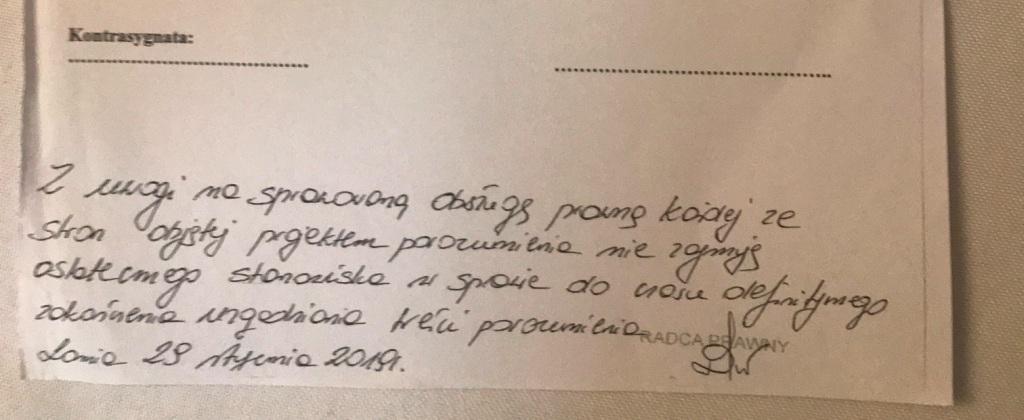 Kontrasygnata:
Z uwagi na sprawowaną obsługę prawną każdej ze
stron objętej projektem porozumienia nie zajmuję
ostatecznego stanowiska w sprawie do czasu definitywnego
zakończenia uzgadniania treści porozumienia
RADCA PRAWNY
29 stycznia 2019r.